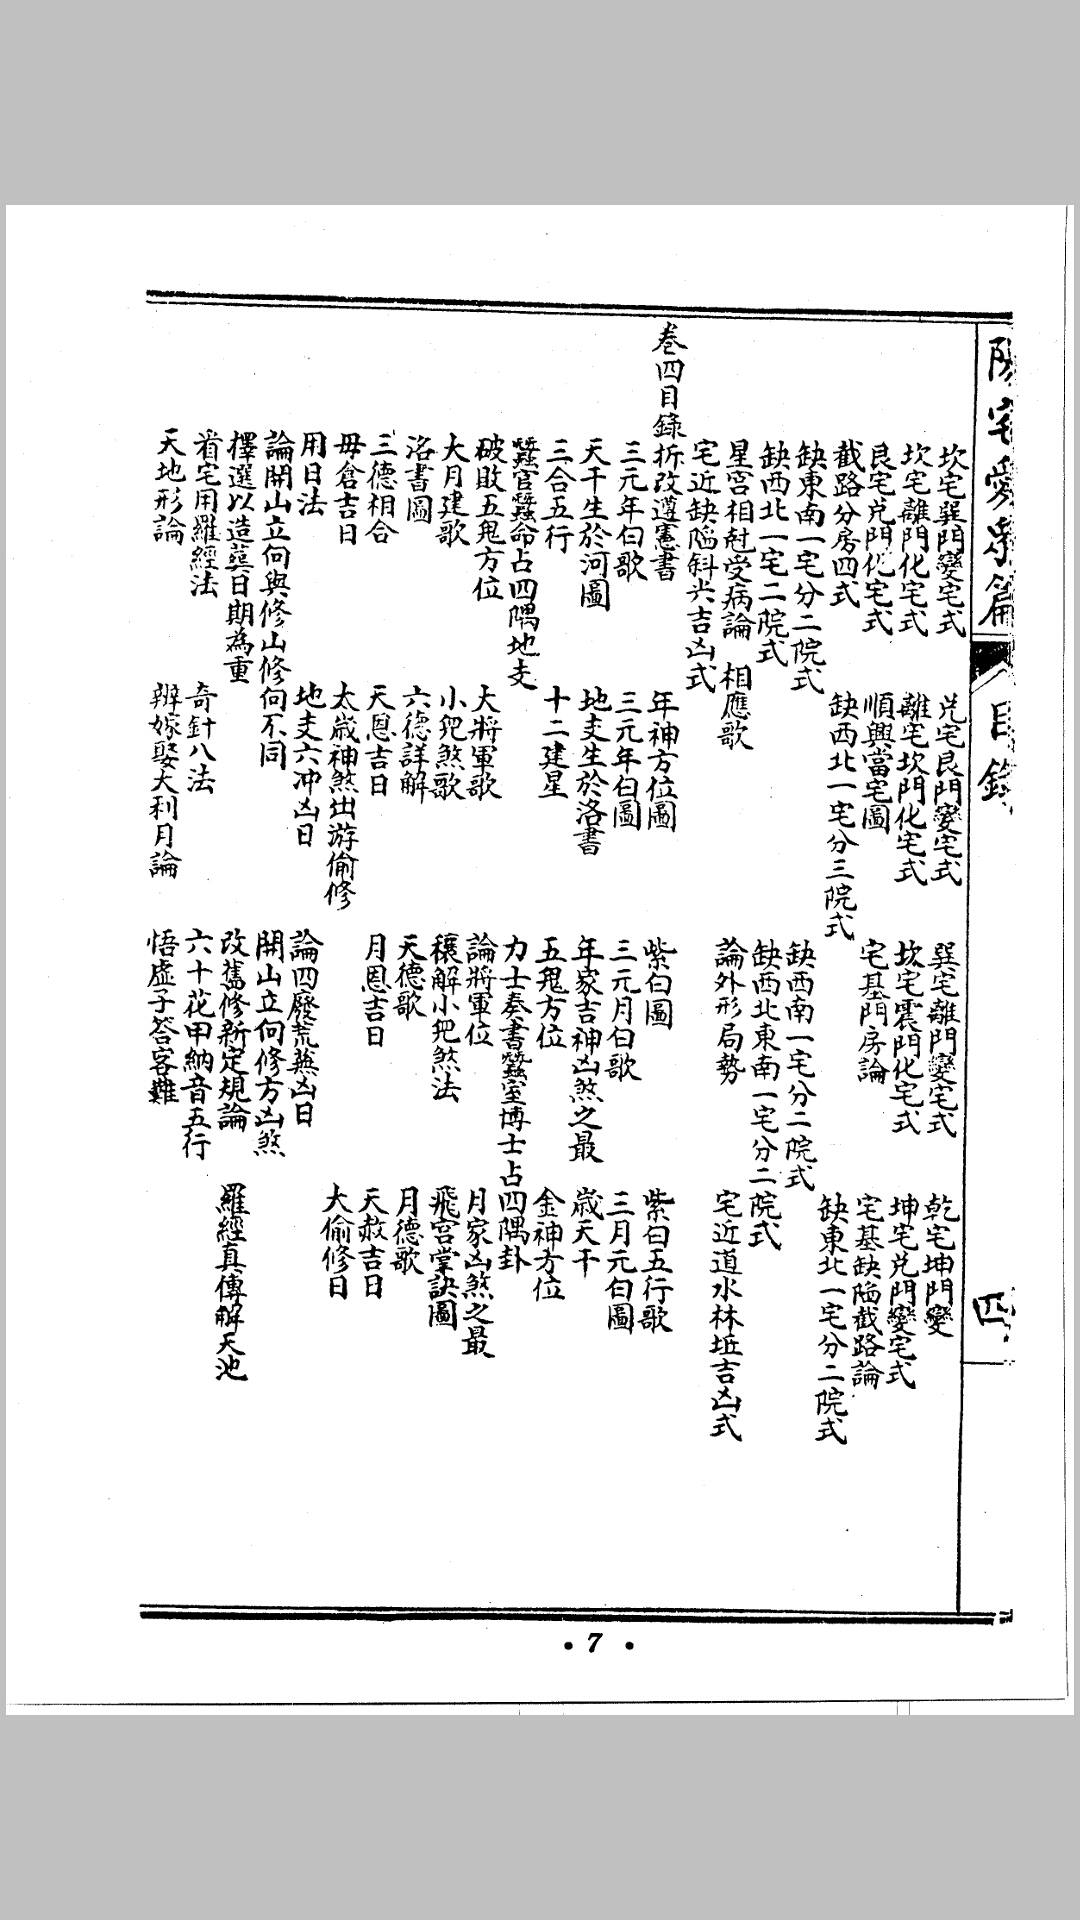 陽宅愛衆篇 目錄 四
坎宅巽門變宅式 兌宅艮門變宅式 巽宅離門變宅式 乾宅坤門變
坎宅離門化宅式 離宅坎門化宅式 坎宅震門化宅式 坤宅兌門變宅式
艮宅兌門化宅式 順興當宅圖 宅基門房論 宅基缺陷截路論
截路分房四式 缺西北一宅分三院式 缺東北一宅分二院式
缺東南一宅分二院式 缺西南一宅分二院式
缺西北一宅二院式 缺西北東南一宅分二院式
星宮相尅受病論 相應歌 論外形局勢 宅近道水林坵吉凶式
宅近缺陷斜尖吉凶式
卷四目錄 折改遵憲書 年神方位圖 紫白圖 紫白五行歌
三元年白歌 三元年白圖 三元月白歌 三月元白圖
天干生於河圖 地支生於洛書 年家吉神凶煞之最 歲天干
三合五行 十二建星 五鬼方位 金神方位
蠶官蠶命占四隅地支 力士奏書蠶室博士占四隅卦
破敗五鬼方位 大將軍歌 論將軍位 月家凶煞之最
大月建歌 小兒煞歌 穰解小兒煞法 飛宮掌訣圖
洛書圖 六德詳解 天德歌 月德歌
三德相合 天恩吉日 月恩吉日 天赦吉日
毋倉吉日 太歲神煞出游偷修 大偷修日
用日法 地支六冲凶日 論四廢荒蕪凶日
論開山立向與修山修向不同 開山立向修方凶煞
擇選以造葬日期為重 改舊修新定規論 羅經真傳解天池
看宅用羅經法 奇針八法 六十花甲納音五行
天地形論 辨嫁娶大利月論 悟虛子答客難
• 7 •